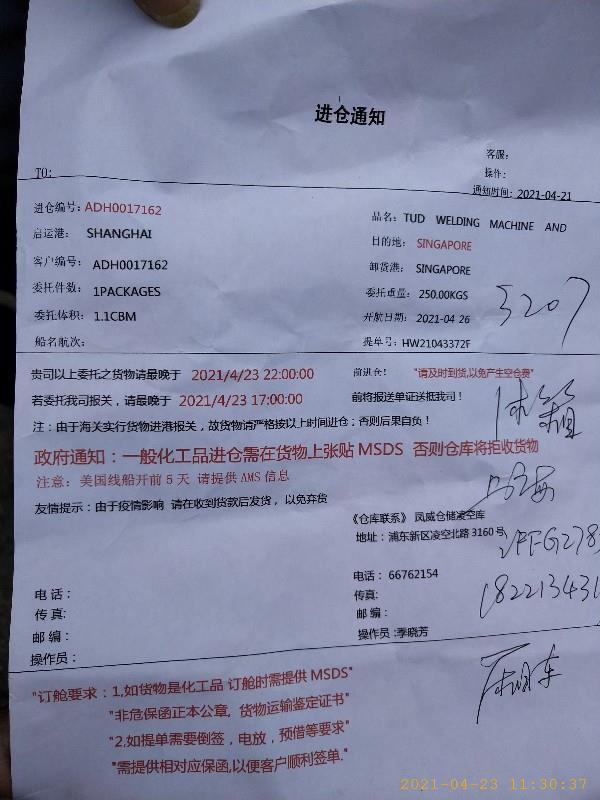 进仓通知
客服：
操作：
TO:
通知时间：2021-04-21
进仓编号：ADH0017162
品名：TUD WELDING MACHINE AND
启运港： SHANGHAI
目的地： SINGAPORE
客户编号： ADH0017162
卸货港： SINGAPORE
委托件数： 1PACKAGES
委托重量： 250.00KGS
委托体积： 1.1CBM
开航日期： 2021-04-26
船名航次：
提单号：HW21043372F
5207
贵司以上委托之货物请最晚于 2021/4/23 22:00:00 前进仓！ "请及时到货,以免产生空仓费"
若委托我司报关，请最晚于 2021/4/23 17:00:00 前将报送单证送抵我司！
注：由于海关实行货物进港报关，故货物请严格按以上时间进仓；否则后果自负！
政府通知：一般化工品进仓需在货物上张贴 MSDS 否则仓库将拒收货物
注意：美国线船开前 5 天 请提供 AMS 信息
友情提示：由于疫情影响 请在收到货款后发货，以免弃货
《仓库联系》 凤威仓储凌空库
地址：浦东新区凌空北路 3160 号
电话：
电话： 66762154
传真:
传真:
邮编：
邮编：
操作员：
操作员 :季晓芳
"订舱要求：1,如货物是化工品 订舱时需提供 MSDS"
"非危保函正本公章, 货物运输鉴定证书"
"2.如提单需要倒签，电放，预借等要求"
"需提供相对应保函,以便客户顺利签单."
2021-04-23 11:30:37